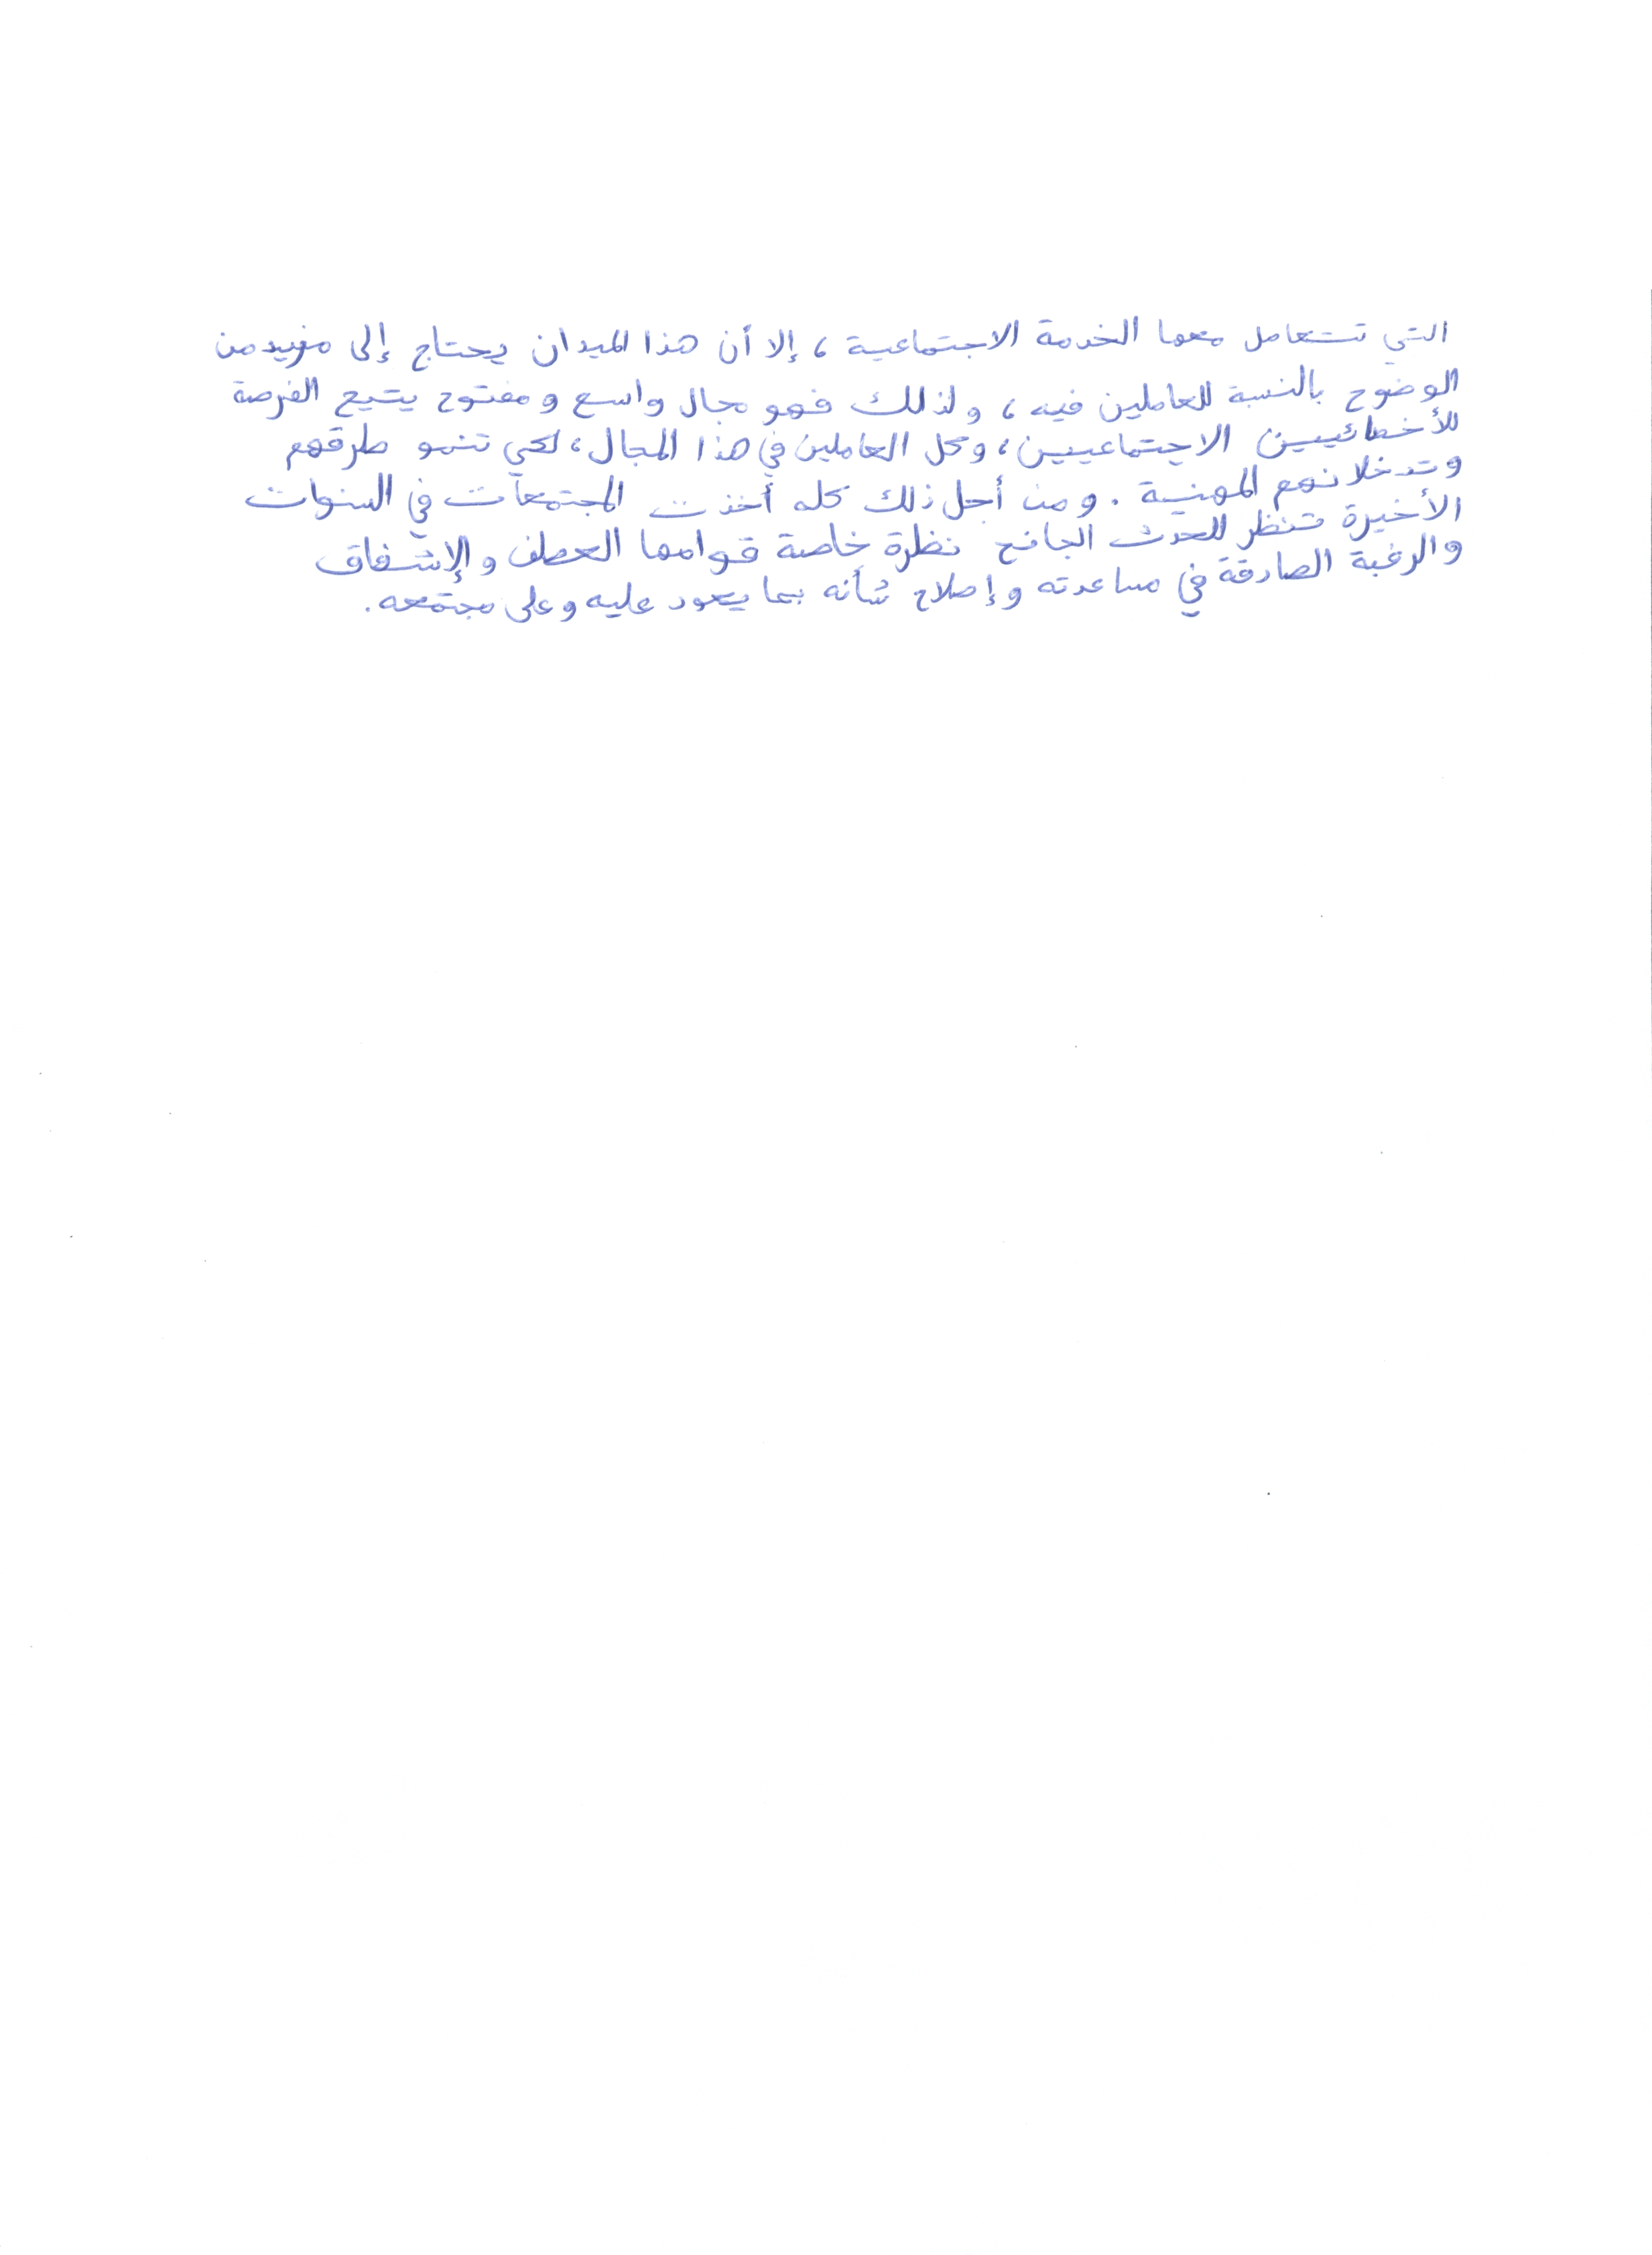 التي تتعامل معها الخدمة الاجتماعية، إلا أن هذا الميدان يحتاج إلى مزيد من
الوضوح بالنسبة للعاملين فيه، ولذلك فهو مجال واسع ومفتوح يتيح الفرصة
للأخصائيين الاجتماعيين، وكل العاملين في هذا المجال، لكي تنمو طرقهم
وتدخلاتهم المهنية. ومن أجل ذلك كله أخذت المجتمعات في السنوات
الأخيرة تنظر للحدث الجانح نظرة خاصة قوامها العطف والإشفاق
والرغبة الصادقة في مساعدته وإصلاح شأنه بما يعود عليه وعلى مجتمعه.